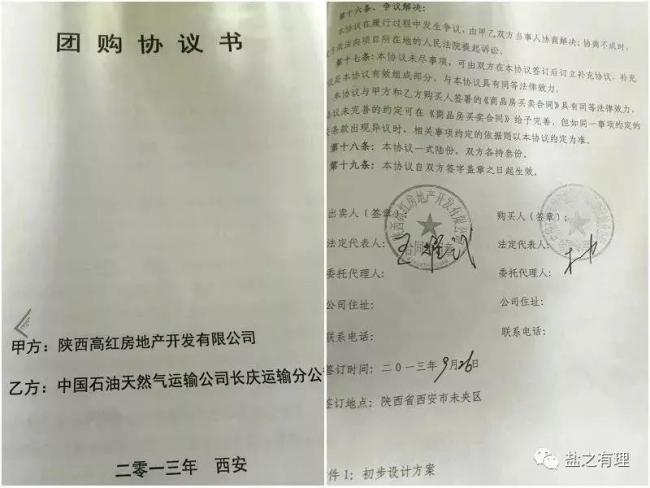 团购协议书
甲方：陕西高红房地产开发有限公司
乙方：中国石油天然气运输公司长庆运输分公
二零一三年 西安
第十六条、争议解决：
本协议在履行过程中发生争议，由甲乙双方当事人协商解决；协商不成时，
依法向项目所在地的人民法院提起诉讼。
第十七条：本协议未尽事项，可由双方在本协议签订后订立补充协议，补充
协议是本协议有效组成部分，与本协议具有同等法律效力。
本协议与甲方和乙方购买人签署的《商品房买卖合同》具有同等法律效力，
协议未完善的约定可在《商品房买卖合同》给予完善，但如同一事项约定的
条款出现异议时，相关事项约定的依据则以本协议约定为准。
第十八条：本协议一式陆份，双方各持叁份。
第十九条：本协议自双方签字盖章之日起生效。
出卖人（签章）：
购买人（签章）：
法定代表人：
法定代表人：
委托代理人：
委托代理人：
公司住址：
公司住址：
联系电话：
联系电话：
签订时间：二0一三年9月26日
签订地点：陕西省西安市未央区
件1：初步设计方案
陕西高红房地产开发有限公司
盐之有理